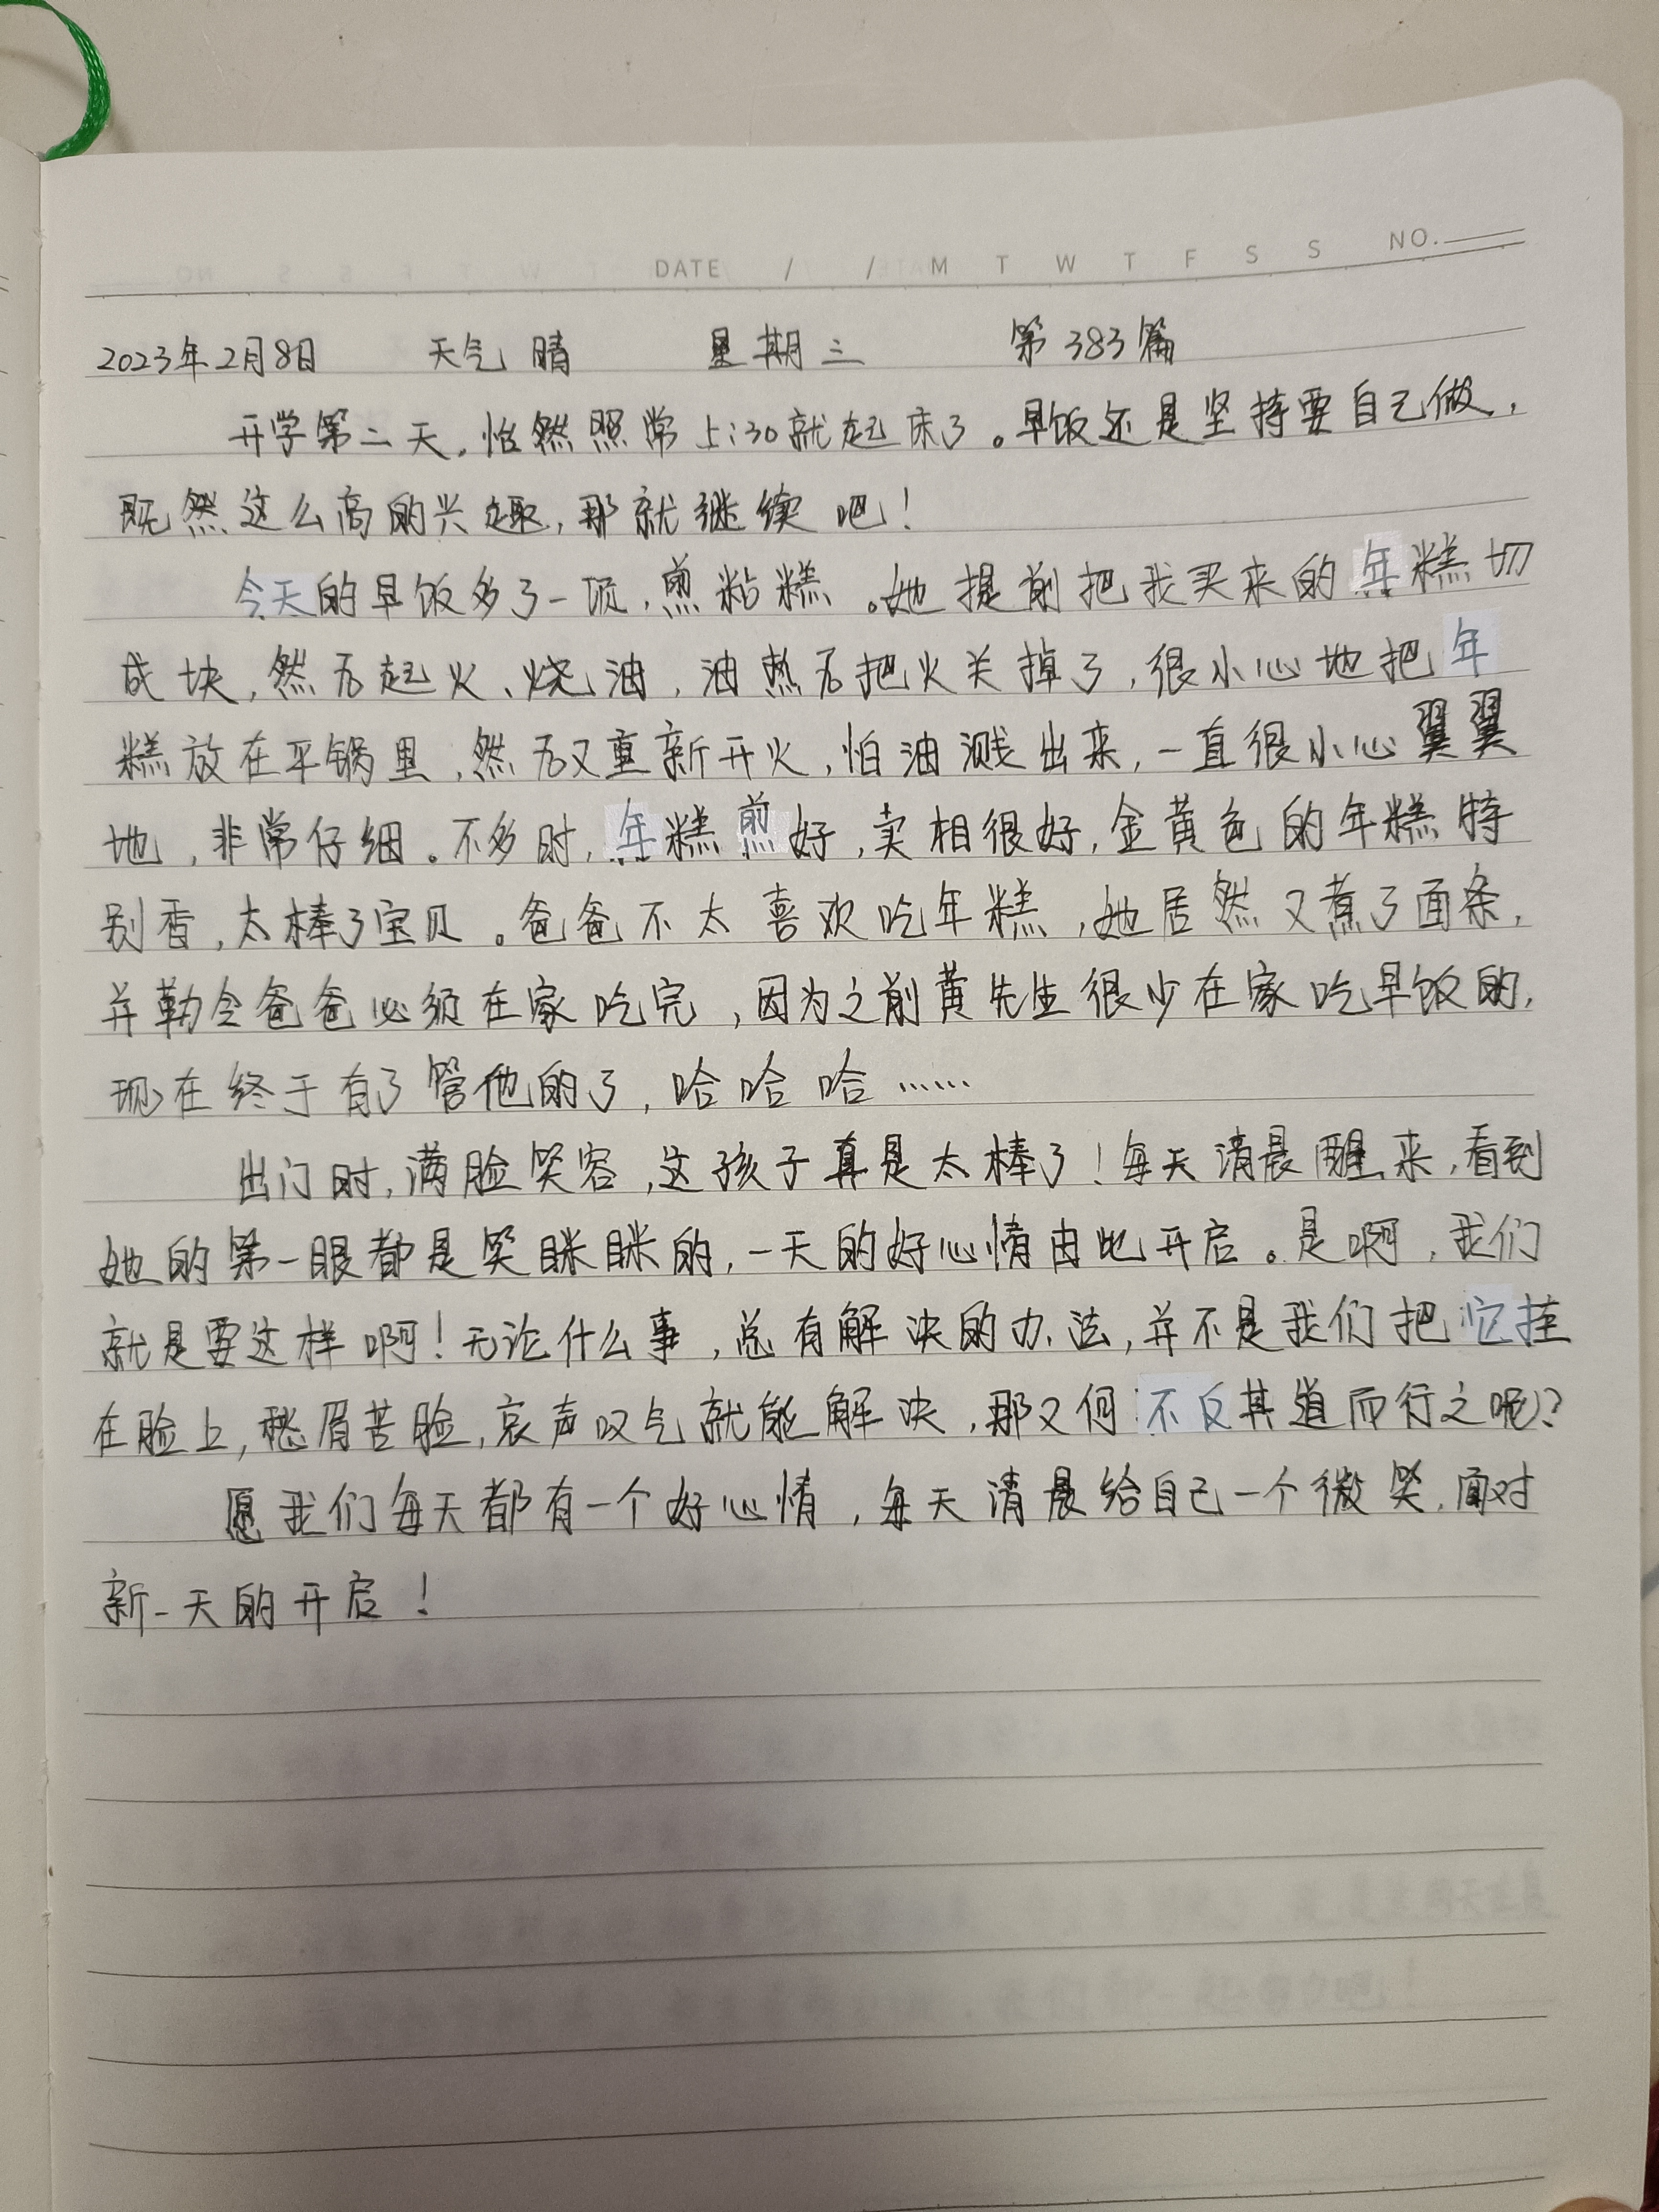 DATE / / M T W T F S S NO.
2023年2月8日 天气 晴 星期三 第383篇
开学第二天,怡然照常5:30就起床了。早饭还是坚持要自己做,
既然这么高的兴趣,那就继续吧!
今天的早饭多了一项,煎粘糕。她提前把我买来的年糕切
成块,然后起火、烧油,油热后把火关掉了,很小心地把年
糕放在平锅里,然后又重新开火,怕油溅出来,一直很小心翼翼
地,非常仔细。不多时,年糕煎好,卖相很好,金黄色的年糕特
别香,太棒了宝贝。爸爸不太喜欢吃年糕,她居然又煮了面条,
并勒令爸爸必须在家吃完,因为之前黄先生很少在家吃早饭的,
现在终于有了管他的了,哈哈哈……
出门时,满脸笑容,这孩子真是太棒了!每天清晨醒来,看到
她的第一眼都是笑眯眯的,一天的好心情由此开启。是啊,我们
就是要这样啊!无论什么事,总有解决的办法,并不是我们把它挂
在脸上,愁眉苦脸,哀声叹气就能解决,那又何不反其道而行之呢?
愿我们每天都有一个好心情,每天清晨给自己一个微笑,面对
新一天的开启!